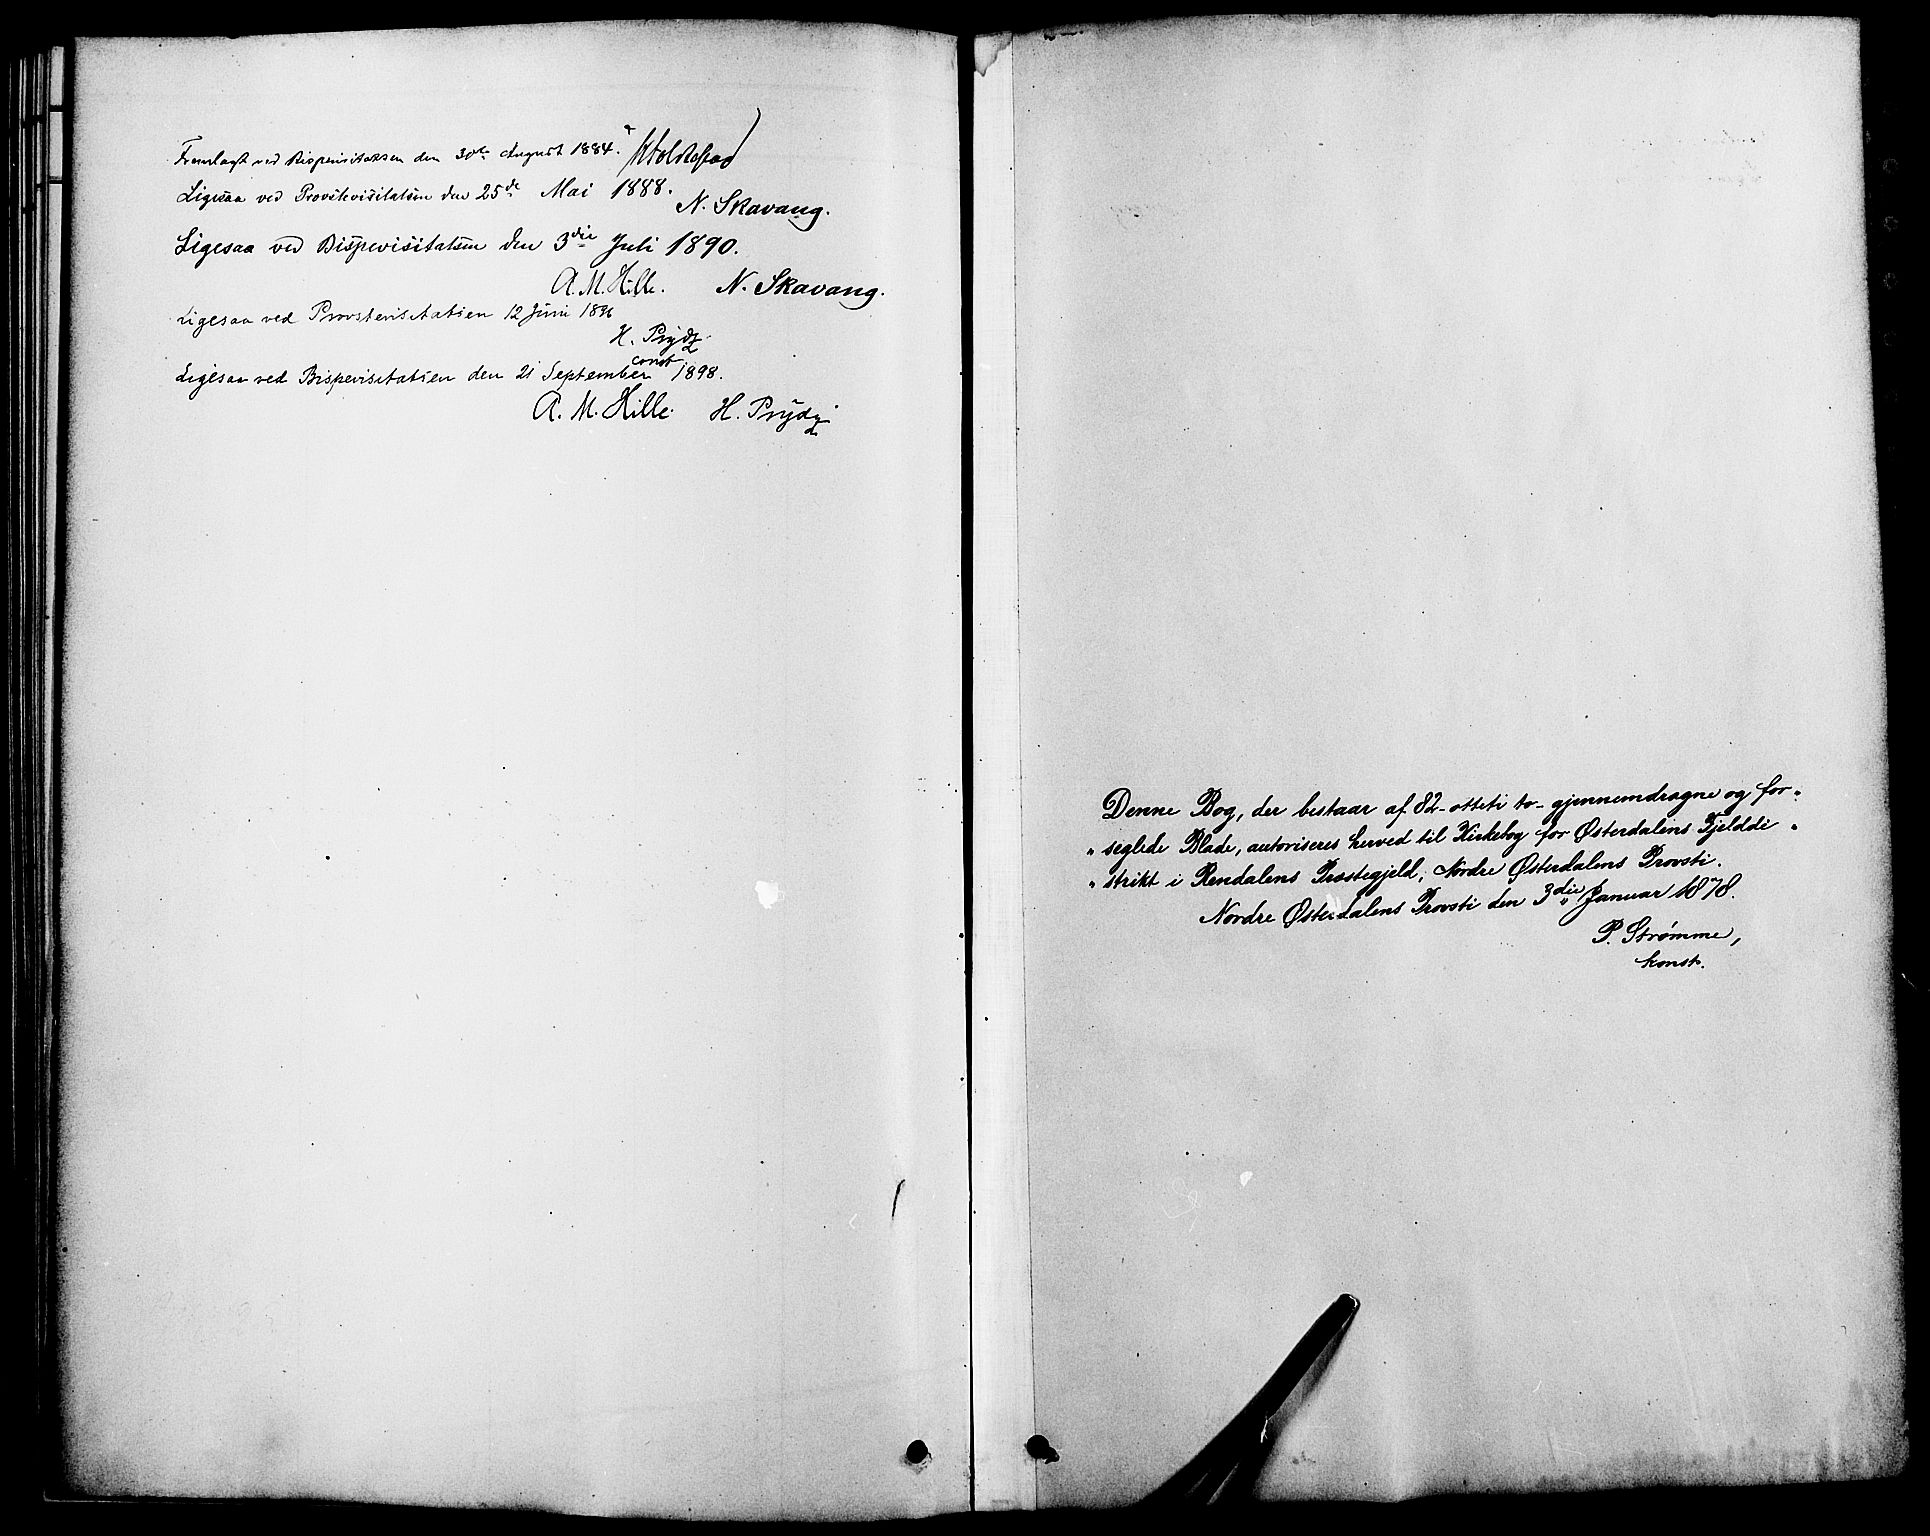 Fremlagt ved Bispevisitatsen den 30te August 1884.
Ligesaa ved Provstevisitatsen den 25de Mai 1888.
N. Skavang.
Ligesaa ved Bispevisitatsen den 3die Juli 1890.
A. M. Hille. N. Skavang.
Ligesaa ved Provstevisitatsen 12 Juni 1896
H. Prydz
const
Ligesaa ved Bispevisitatsen den 21 September 1898.
A. M. Hille. H. Prydz
Denne Bog, der bestaar af 82 - otteti to - gjennemdragne og for-
"seglede Blade, autoriseres herved til Kirkebog for Østerdalens Fjelddi-
"strikt i Rendalens Præstegjeld, Nordre Østerdalens Provsti.
Nordre Østerdalens Provsti den 3die Januar 1878.
P. Strømme,
konst.